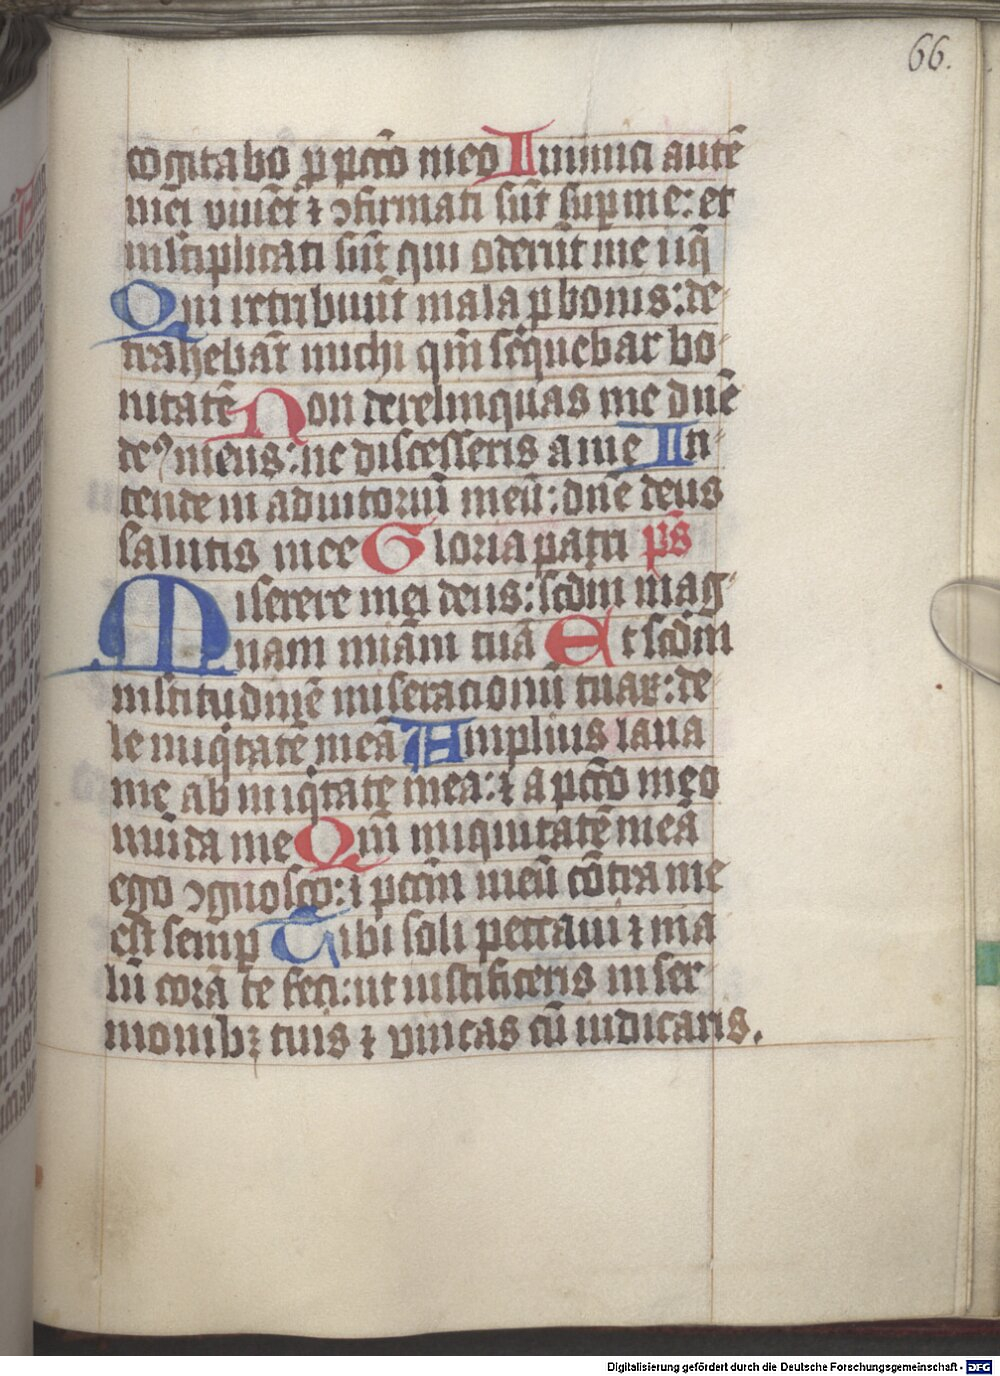 66.
cogitabo p pctō meo Inimici autē
mei viuēt ⁊ ꝯfirmati sūt sup me: et
mltiplicati sūt qui oderūt me iiq̄
Qui retribuūt mala p bonis: de-
trahebāt michi qm̄ sequebar bo-
nitatē Non derelinquas me dn̄e
deꝰ meus: ne discesseris a me In-
tende in adiutoriū meū: dn̄e deus
salutis mee Gloria patri p̄s
Miserere mei deus: scdm mag-
nam miām tuā Et scdm
mltitudinē miseracionū tuaꝝ: de-
le iniq̇tatē meā Amplius laua
me ab iniq̇tate mea: ⁊ a pctō meo
mūda me Qm̄ iniquitatē meā
ego ꝯgnosco: ⁊ pctm̄ meū cōtra me
est semp Tibi soli peccaui ⁊ ma
lū corā te feci: ut iustificeris in ser
monibꝫ tuis ⁊ vincas cū iudicaris.
Digitalisierung gefördert durch die Deutsche Forschungsgemeinschaft - DFG